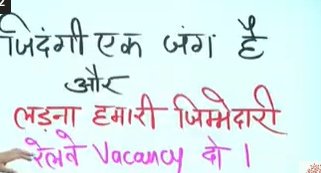 जिदंगी एक जंग है
और
लड़ना हमारी जिम्मेदारी
रेलवे Vacancy दो ।